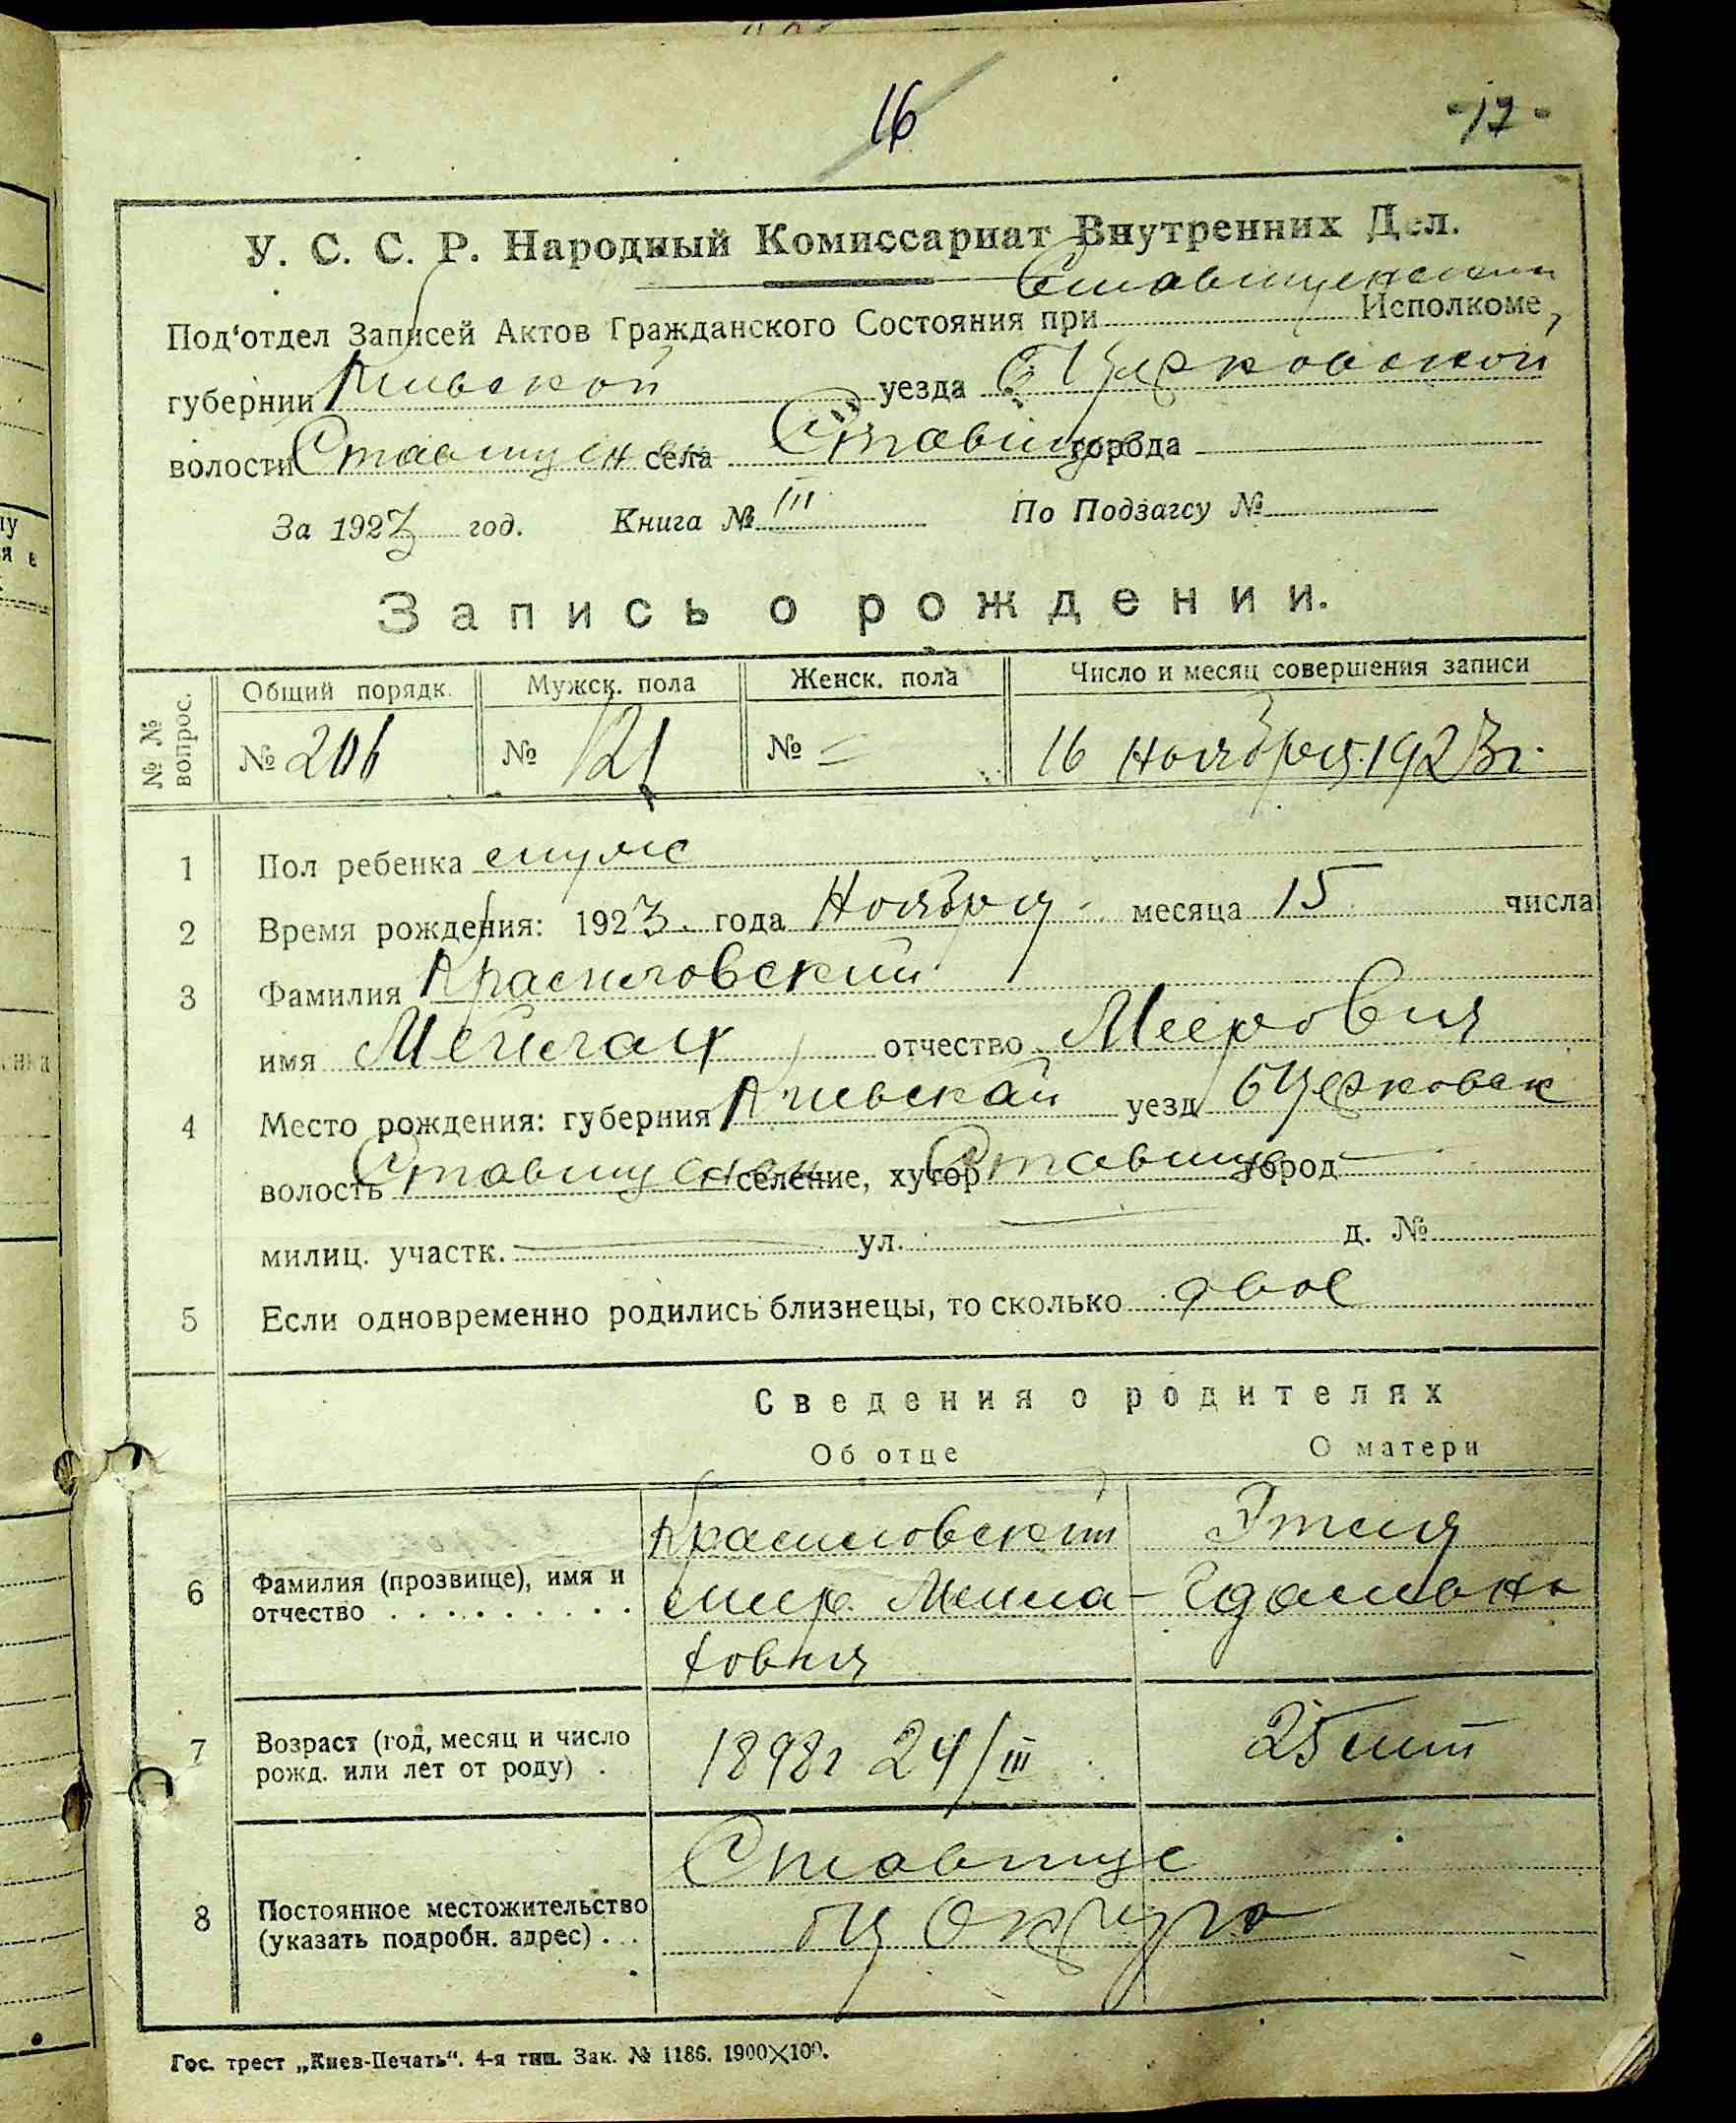 16
-17-
У. С. С. Р. Народный Комиссариат Внутренних Дел.
Под‘отдел Записей Актов Гражданского Состояния при Ставищенским Исполкоме,
губернии Киевской уезда Б Церковской
волости Ставищенск села Ставище города
За 1923 год. Книга № III По Подзагсу №
Запись о рождении.
№ № вопрос. Общий порядк. Мужск. пола Женск. пола Число и месяц совершения записи
№ 206 № 121 № – 16 ноября 1923г.
1 Пол ребенка муж
2 Время рождения: 1923 года Ноября месяца 15 числа
3 Фамилия Красиловский
имя отчество Меерович
4 Место рождения: губерния Киевской уезд БЦерковск
волость Ставищенск селение, хутор Ставище город
милиц. участк. ул. д. №
5 Если одновременно родились близнецы, то сколько двое
Сведения о родителях
Об отце О матери
Красиловский Этля
6 Фамилия (прозвище), имя и
отчество
7 Возраст (год, месяц и число
рожд. или лет от роду) 1898г 24/III 25 лет
Ставище
8 Постоянное местожительство
(указать подробн. адрес) БЦ Округа
Гос. трест „Киев-Печать“. 4-я тип. Зак. № 1186. 1900×100.